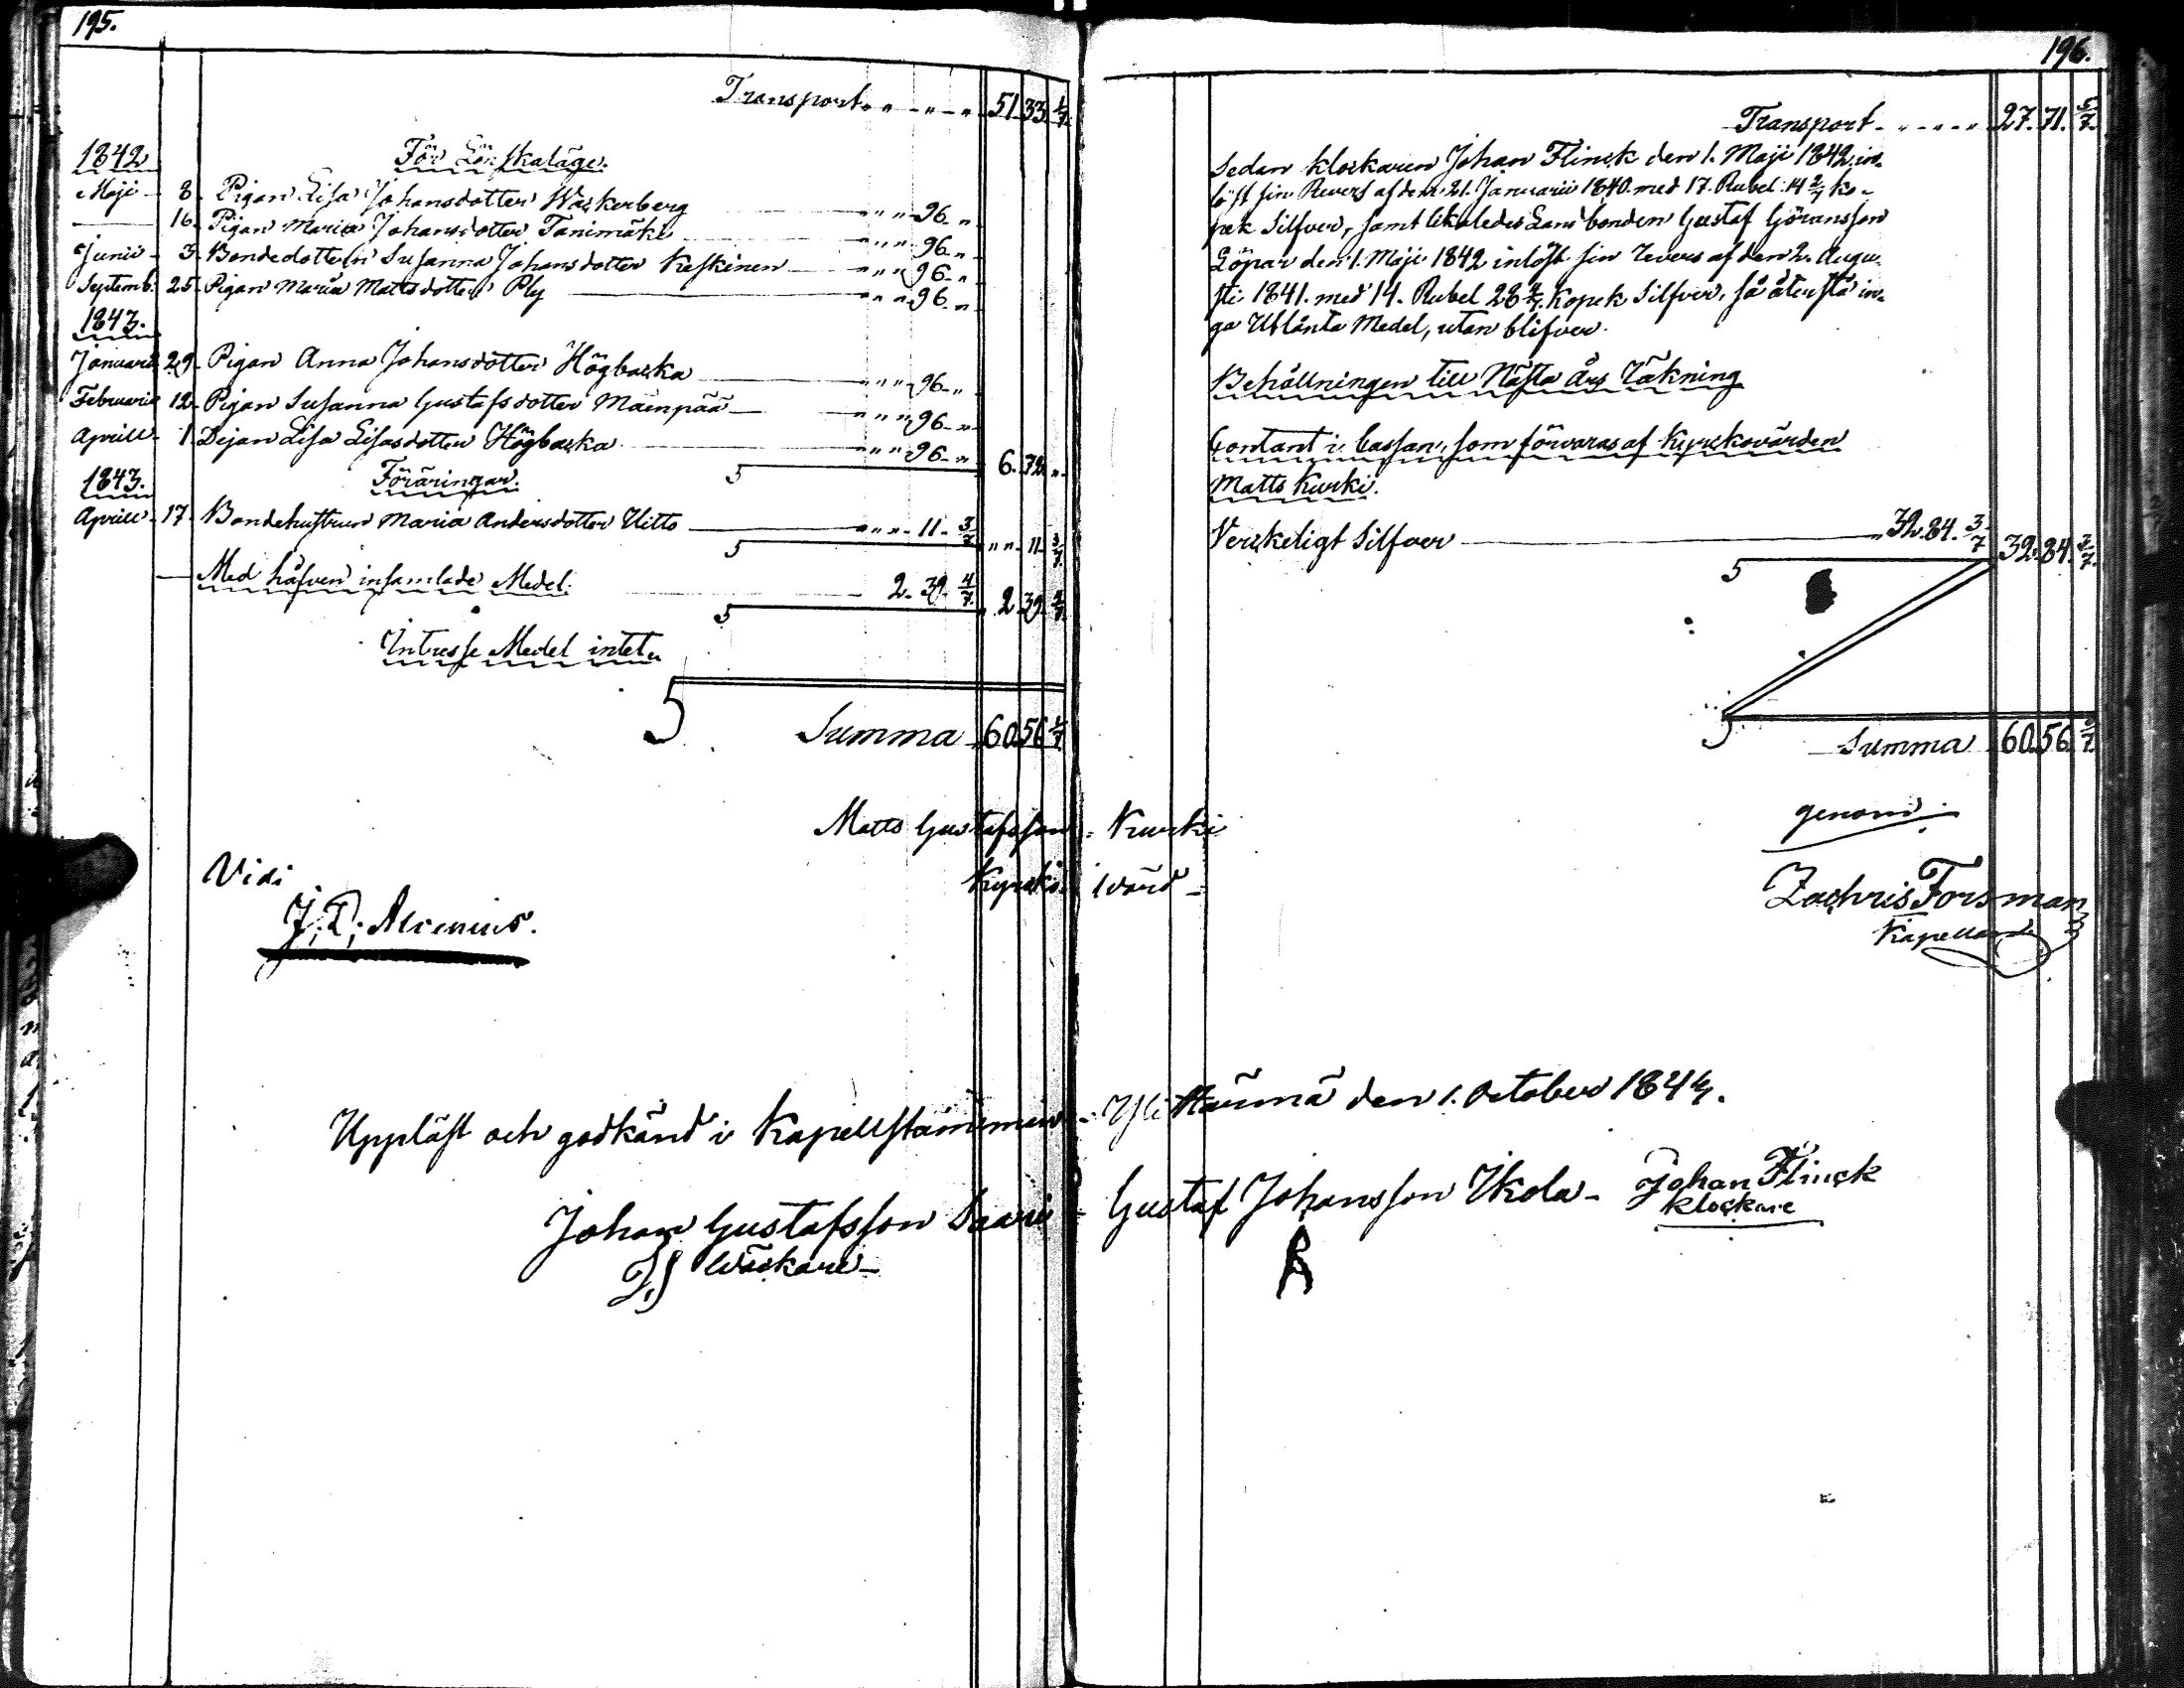 195.
Transport 51. 33. 1/7.
1842
För Lönskaläge.
Maji 8. Pigan Lisa Johansdotter Wäckerberg " " 96. "
16. Pigan Maria Johansdotter Tanimäki " " 96. "
Junii 3. Bondedottern Susanna Johansdotter Keskinen " " 96. "
Septemb. 25. Pigan Maria Mattsdotter Ply " " 96. "
1843.
Januarii 29. Pigan Anna Johansdotter Högbacka " " 96. "
Februarii 12. Pigan Susanna Gustafsdotter Mäenpää " " 96. "
Aprill 1. Dejan Lisa Lisasdotter Högbacka " " 96. " 6. 72. "
1843.
Föräringar.
Aprill 17. Bondehustrun Maria Andersdotter Uitto " " 11. 3/7 " " 11. 3/7.
Med håfven insamlade Medel. 2. 39. 4/7. 2. 39. 4/7.
Intresse Medel intet
Summa 60. 56. 1/7.
Matts Gustafsson Kurki
Kyrko wärd
Vidi
J. D. Alcenius.
196.
Transport 27. 71. 5/7.
Sedan klockaren Johan Flinck den 1. Maji 1842 in-
löst sin Revers af den 21. Januarii 1840. med 17. Rubel 14 2/7 ko-
pek Silfver, samt likaledes Landbonden Gustaf Göransson
Löpar den 1. Maji 1842 inlöst sin revers af den 2. Augu-
sti 1841. med 14. Rubel 28 4/7. Kopek Silfver, så återstå in-
ga Utlånta Medel, utan blifver
Behållningen till Nästa års Räkning
Contant i Cassan, som förvaras af Kyrckovärden
Matts Kurki.
Verckeligt Silfver 32. 84. 3/7 32. 84. 3/7.
Summa 60. 56. 1/7.
genom
Zachris Forsman
Kapellan
Uppläst och godkänd i Kapellstämman Ylistaus den 1. October 1844.
Johan Gustafsson Saari Gustaf Johansson Ikola Johan Flinck
Wäckare klockare